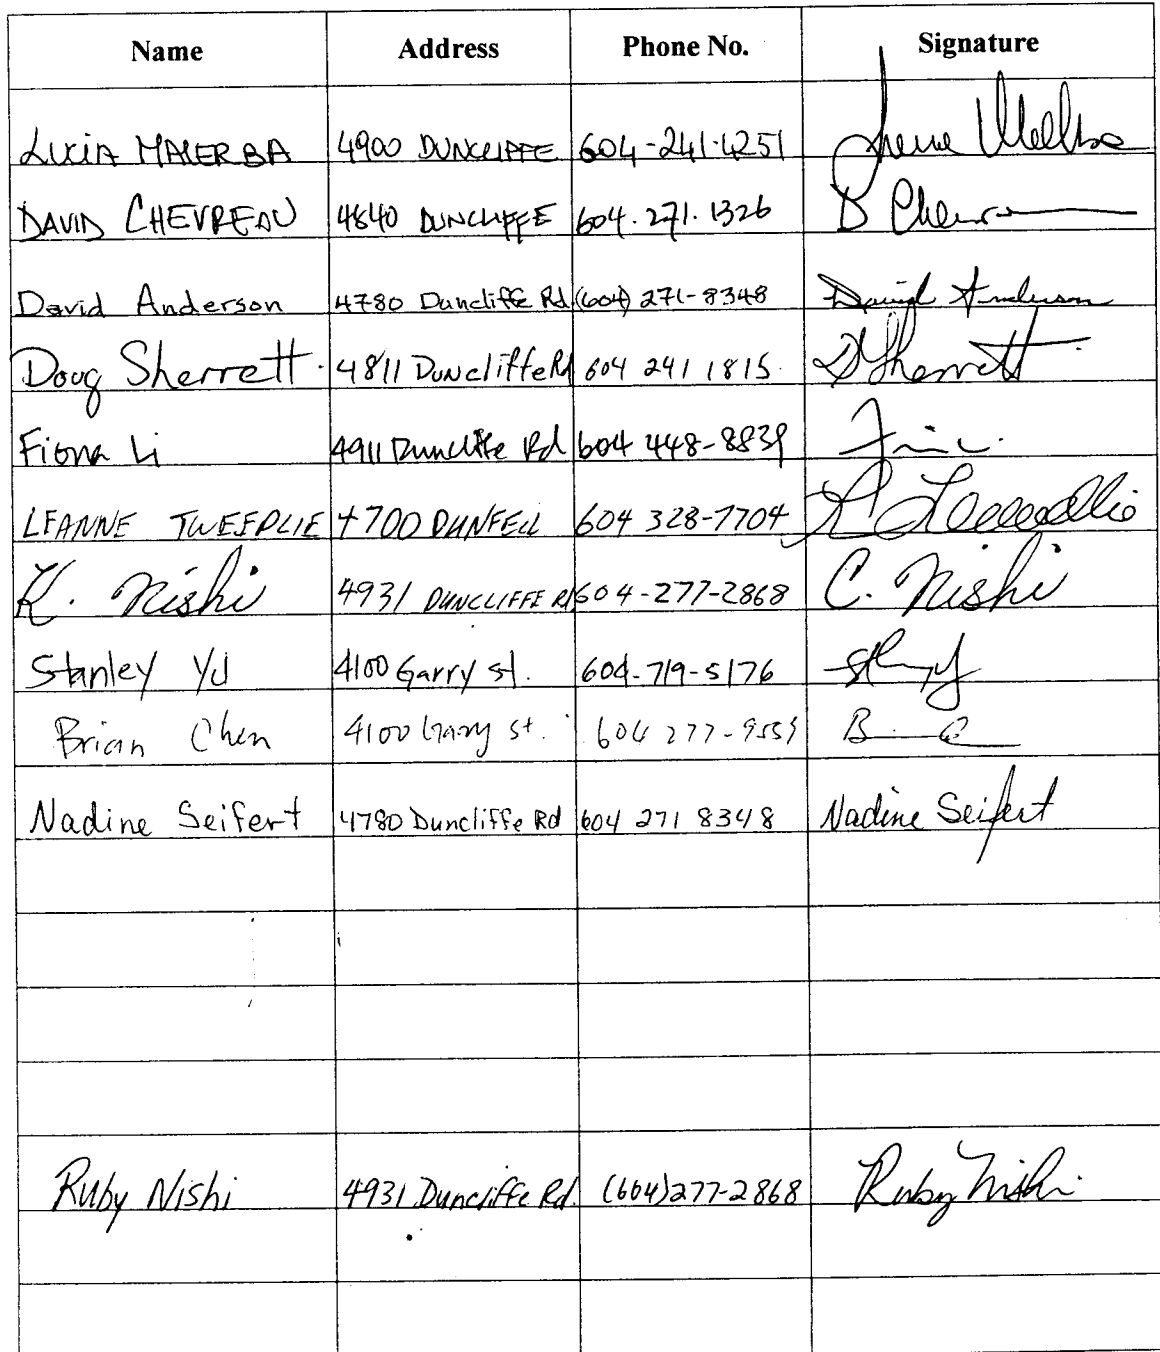 Name Address Phone No. Signature
LUCIA MALERBA 4900 DUNCLIFFE 604-241-4251
DAVID CHEVREAU 4640 DUNCLIFFE 604.271.1326 D Chevr
David Anderson 4780 Duncliffe Rd (604) 271-8348 David Anderson
Doug Sherrett 4811 Duncliffe Rd 604 241 1815 D Sherrett
Fiona Li 4911 Duncliffe Rd 604 448-8839
LEANNE TWEEDLIE 4700 DUNFELL 604 328-7704
K. Nishi 4931 DUNCLIFFE R 604-277-2868 C. Nishi
Stanley YU 4100 Garry st. 604-719-5176
Brian Chen 4100 Garry st. 604 277-9559
Nadine Seifert 4780 Duncliffe Rd 604 271 8348 Nadine Seifert
Ruby Nishi 4931 Duncliffe Rd. (604)277-2868 Ruby Nishi